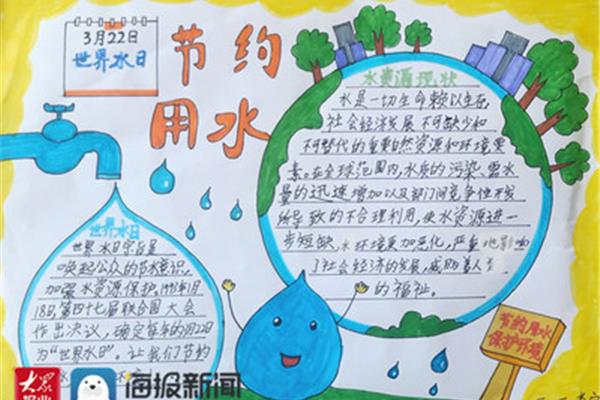 3月22日
世界水日
节约
用水
水资源现状
水是一切生命赖以生存,
社会经济发展不可缺少和
不可替代的重要自然资源和环境要
素。在全球范围内,水质的污染、需水
量的迅速增加以及部门间竞争性开发
所导致的不合理利用,使水资源进一
步短缺,水环境更加恶化,严重地影响
了社会经济的发展,威胁着人
的福祉。
世界水日
世界水日宗旨是
唤起公众的节水意识,
加强水资源保护。
18日,第四十七届联合国大会
作出决议,确定每年的3月22日
为“世界水日”。让我们节约
节约用水
保护环境
大众报业
海报新闻